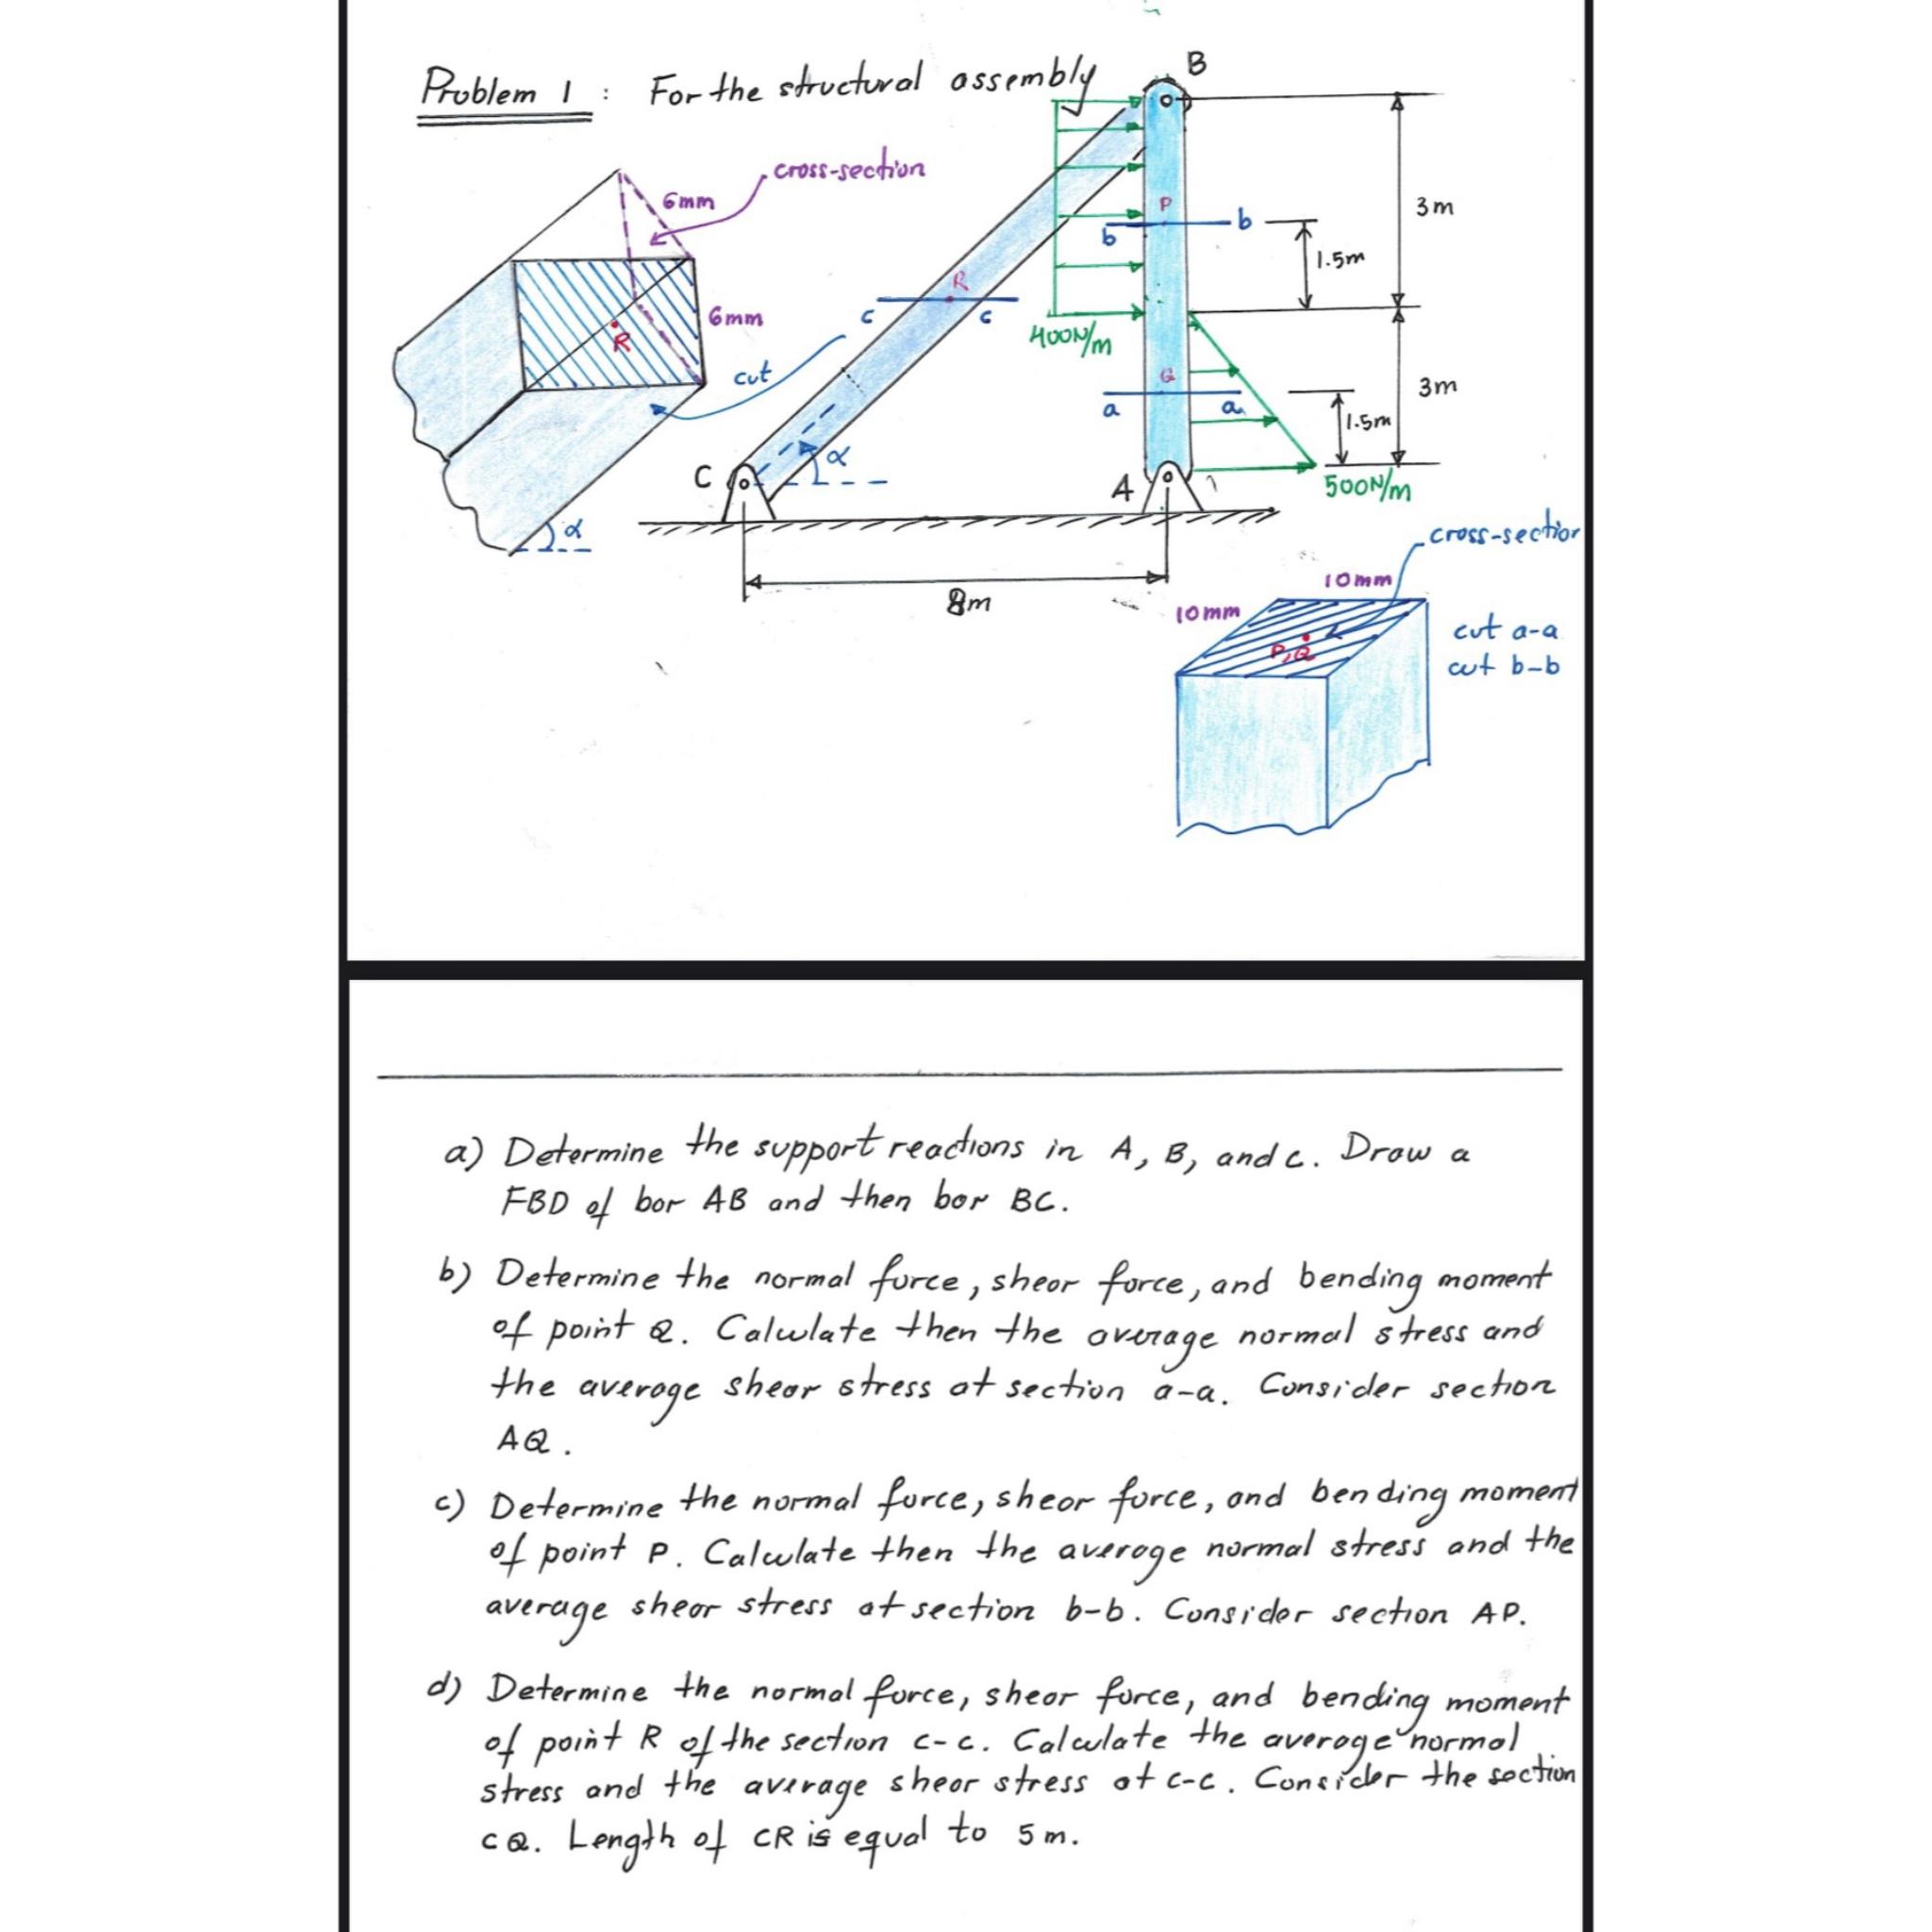 Problem 1 : For the structural assembly
B
cross-section
6mm
P
3m
b
b
1.5m
R
c
c
6mm
R
400N/m
cut
Q
3m
a
a
1.5m
C
α
A
500N/m
α
cross-section
8m
10mm
10mm
cut a-a
P,Q
cut b-b
a) Determine the support reactions in A, B, and C. Draw a
FBD of bar AB and then bar BC.
b) Determine the normal force, shear force, and bending moment
of point Q. Calculate then the average normal stress and
the average shear stress at section a-a. Consider section
AQ.
c) Determine the normal force, shear force, and bending moment
of point P. Calculate then the average normal stress and the
average shear stress at section b-b. Consider section AP.
d) Determine the normal force, shear force, and bending moment
of point R of the section c-c. Calculate the average normal
stress and the average shear stress at c-c. Consider the section
CQ. Length of CR is equal to 5m.